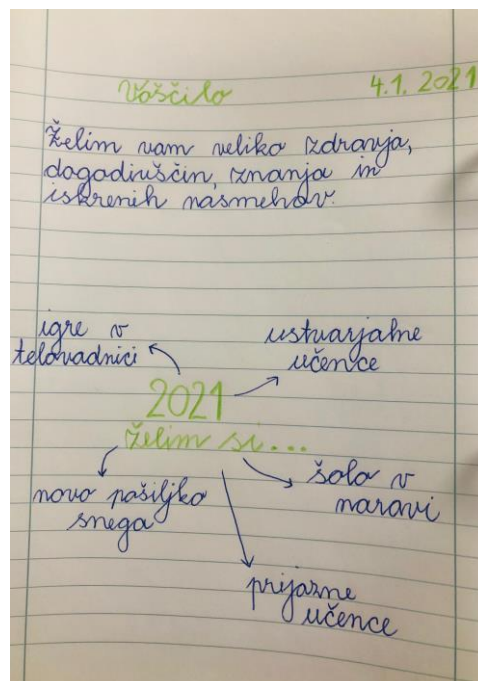 Voščilo 4.1. 2021
Želim vam veliko zdravja,
dogodivščin, znanja in
iskrenih nasmehov.
igre v
telovadnici
ustvarjalne
učence
2021
želim si...
novo pošiljko
snega
šolo v
naravi
prijazne
učence